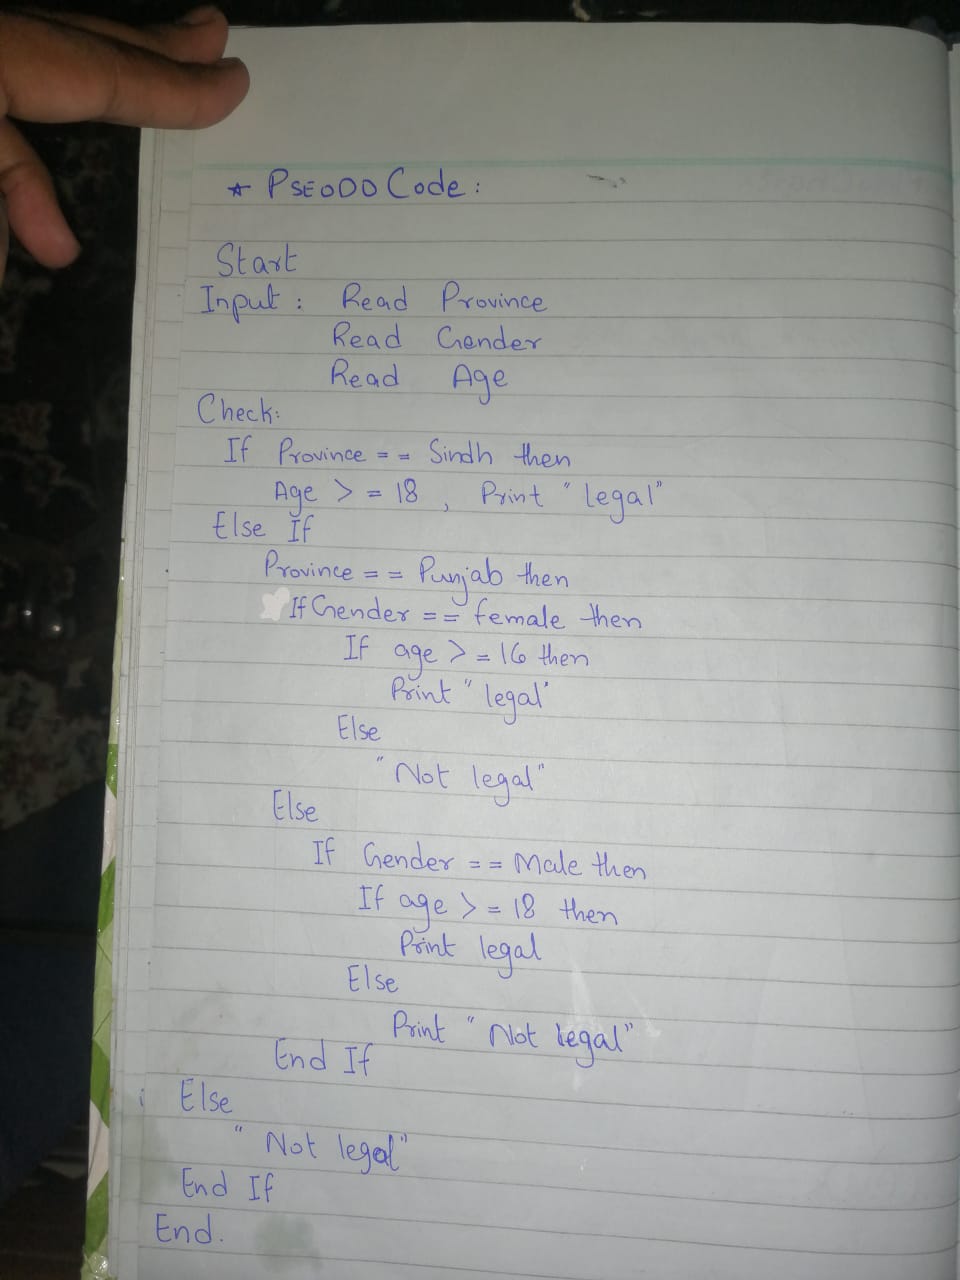 * PSEODO Code :
Start
Input : Read Province
Read Gender
Read Age
Check:
If Province == Sindh then
Age >= 18 , Print "legal"
Else If
Province == Punjab then
If Gender == female then
If age >= 16 then
Print "legal"
Else
"Not legal"
Else
If Gender == Male then
If age >= 18 then
Print legal
Else
Print "Not legal"
End If
Else
"Not legal"
End If
End.